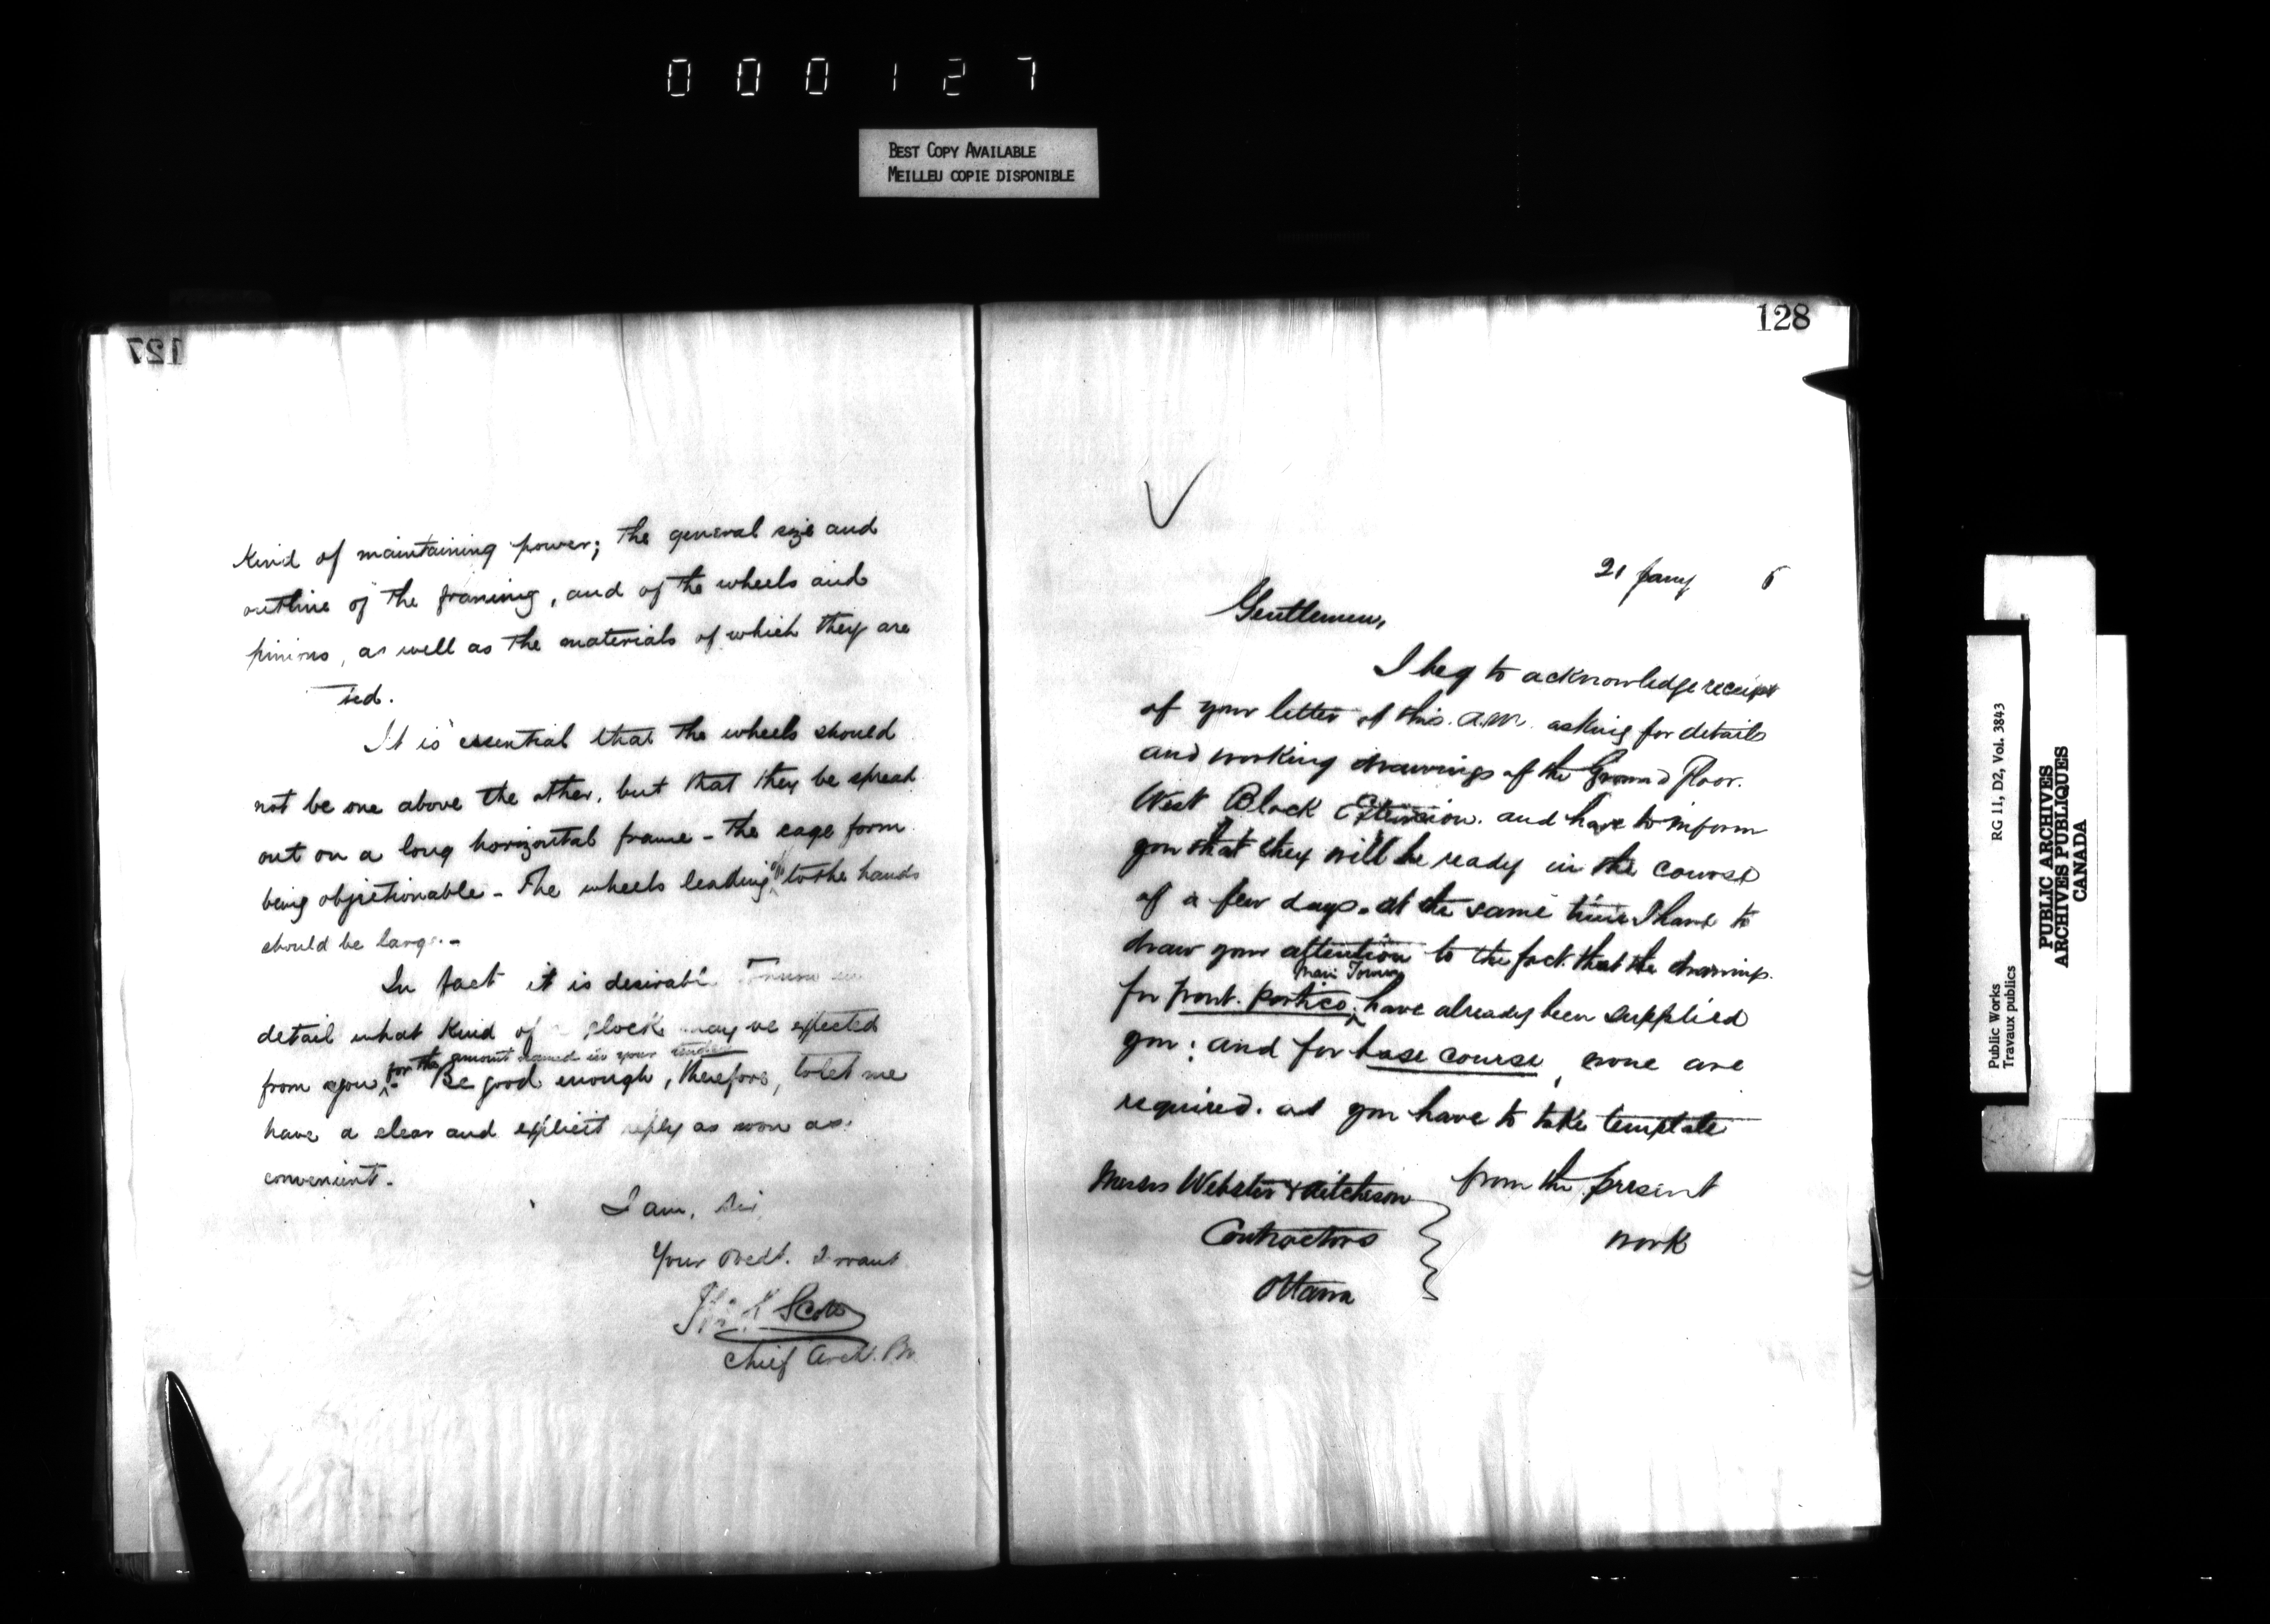 000127
BEST COPY AVAILABLE
MEILLEU COPIE DISPONIBLE
127
Kind of maintaining power; the general size and
outline of the framing, and of the wheels and
pinions, as well as the materials of which they are
It is essential that the wheels should
not be one above the other, but that they be spread
out on a long horizontal frame - the cage form
being objectionable - The wheels leading off to the hands
should be large. -
In fact it is desirable
detail what kind of a clock may be expected
for the amount named in your tender
from you. Be good enough, therefore, to let me
have a clear and explicit reply as soon as
convenient.
I am, Sir,
Your Obedt. Servant
Scott
Chief Archt. P.W.
128
21 Jany 6
Gentlemen,
I beg to acknowledge receipt
of your letter of this. a.m. asking for details
and working drawings of the Ground Floor.
West Block Extension. and have to inform
you that they will be ready in the course
of a few days. at the same time I have to
draw your attention to the fact that the drawings.
Main Tower
for front. portico, have already been supplied
you: and for base course, none are
required. as you have to take template
from the present
work
Messrs Webster & Aitcheson
Contractors
Ottawa
Public Works RG 11, D2, Vol. 3843
Travaux publics
PUBLIC ARCHIVES
ARCHIVES PUBLIQUES
CANADA